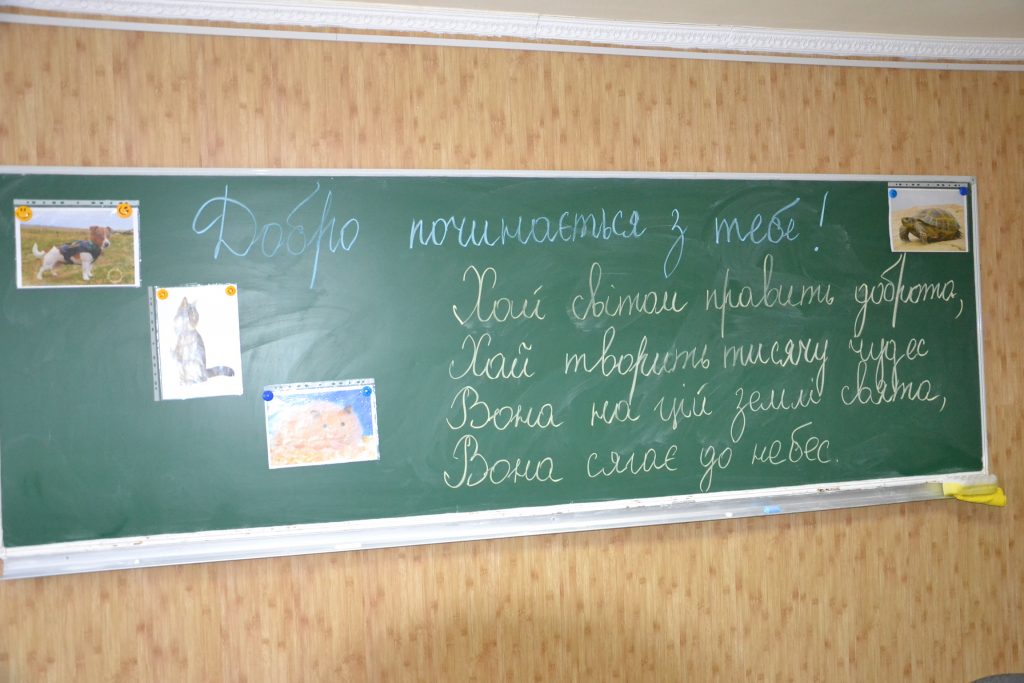 Добро починається з тебе!
Хай світом править доброта,
Хай творить тисячу чудес
Вона на цій землі свята,
Вона сягає до небес.